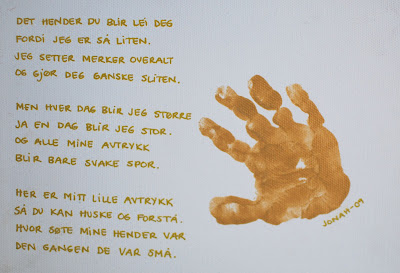 DET HENDER DU BLIR LEI DEG
FORDI JEG ER SÅ LITEN.
JEG SETTER MERKER OVERALT
OG GJØR DEG GANSKE SLITEN.
MEN HVER DAG BLIR JEG STØRRE
JA EN DAG BLIR JEG STOR.
OG ALLE MINE AVTRYKK
BLIR BARE SVAKE SPOR.
HER ER MITT LILLE AVTRYKK
SÅ DU KAN HUSKE OG FORSTÅ.
HVOR SØTE MINE HENDER VAR
DEN GANGEN DE VAR SMÅ.
JONAH-09